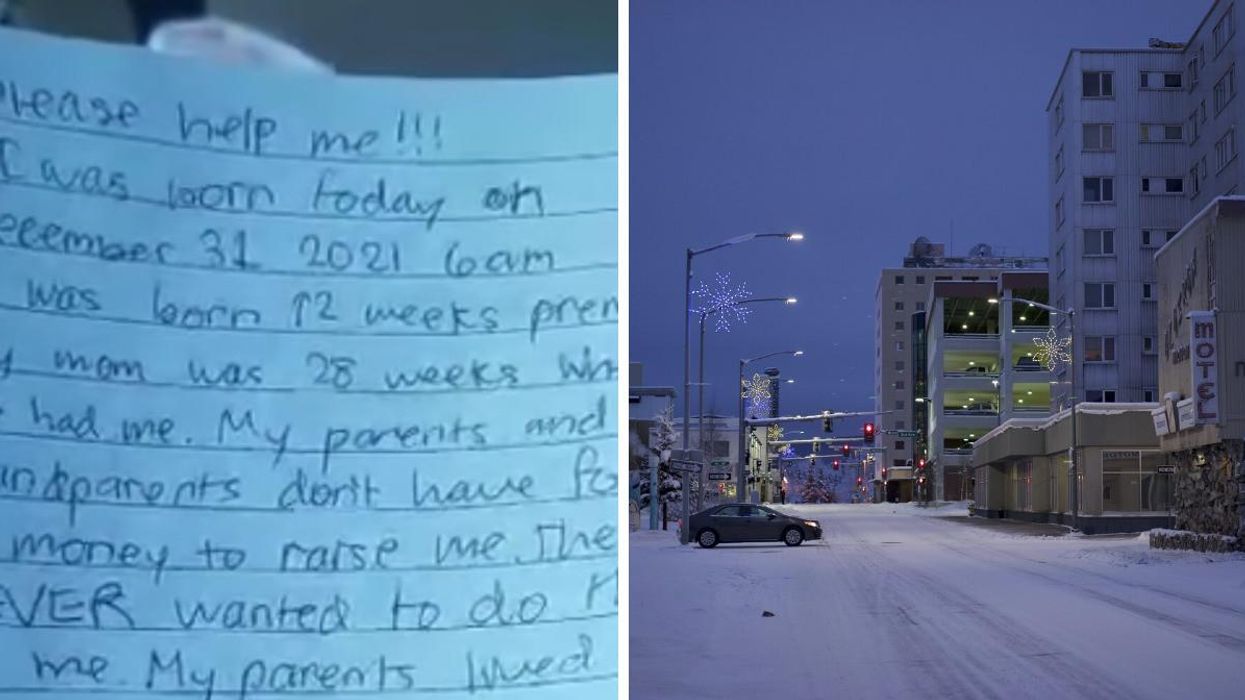 Please help me!!!
I was born today on
ecember 31 2021 6am
was born 12 weeks prem
y mom was 28 weeks wh
had me. My parents and
andparents don't have fo
money to raise me. The
EVER wanted to do
me. My parents loved
MOTEL